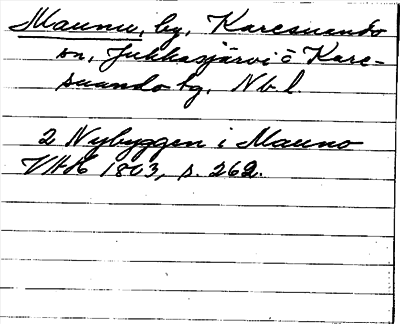 Maunu, by, Karesuando
sn, Jukkasjärvi o Kare-
suando tg, Nbl.
2 Nybyggen i Mauno
VAH 1803, s. 262.